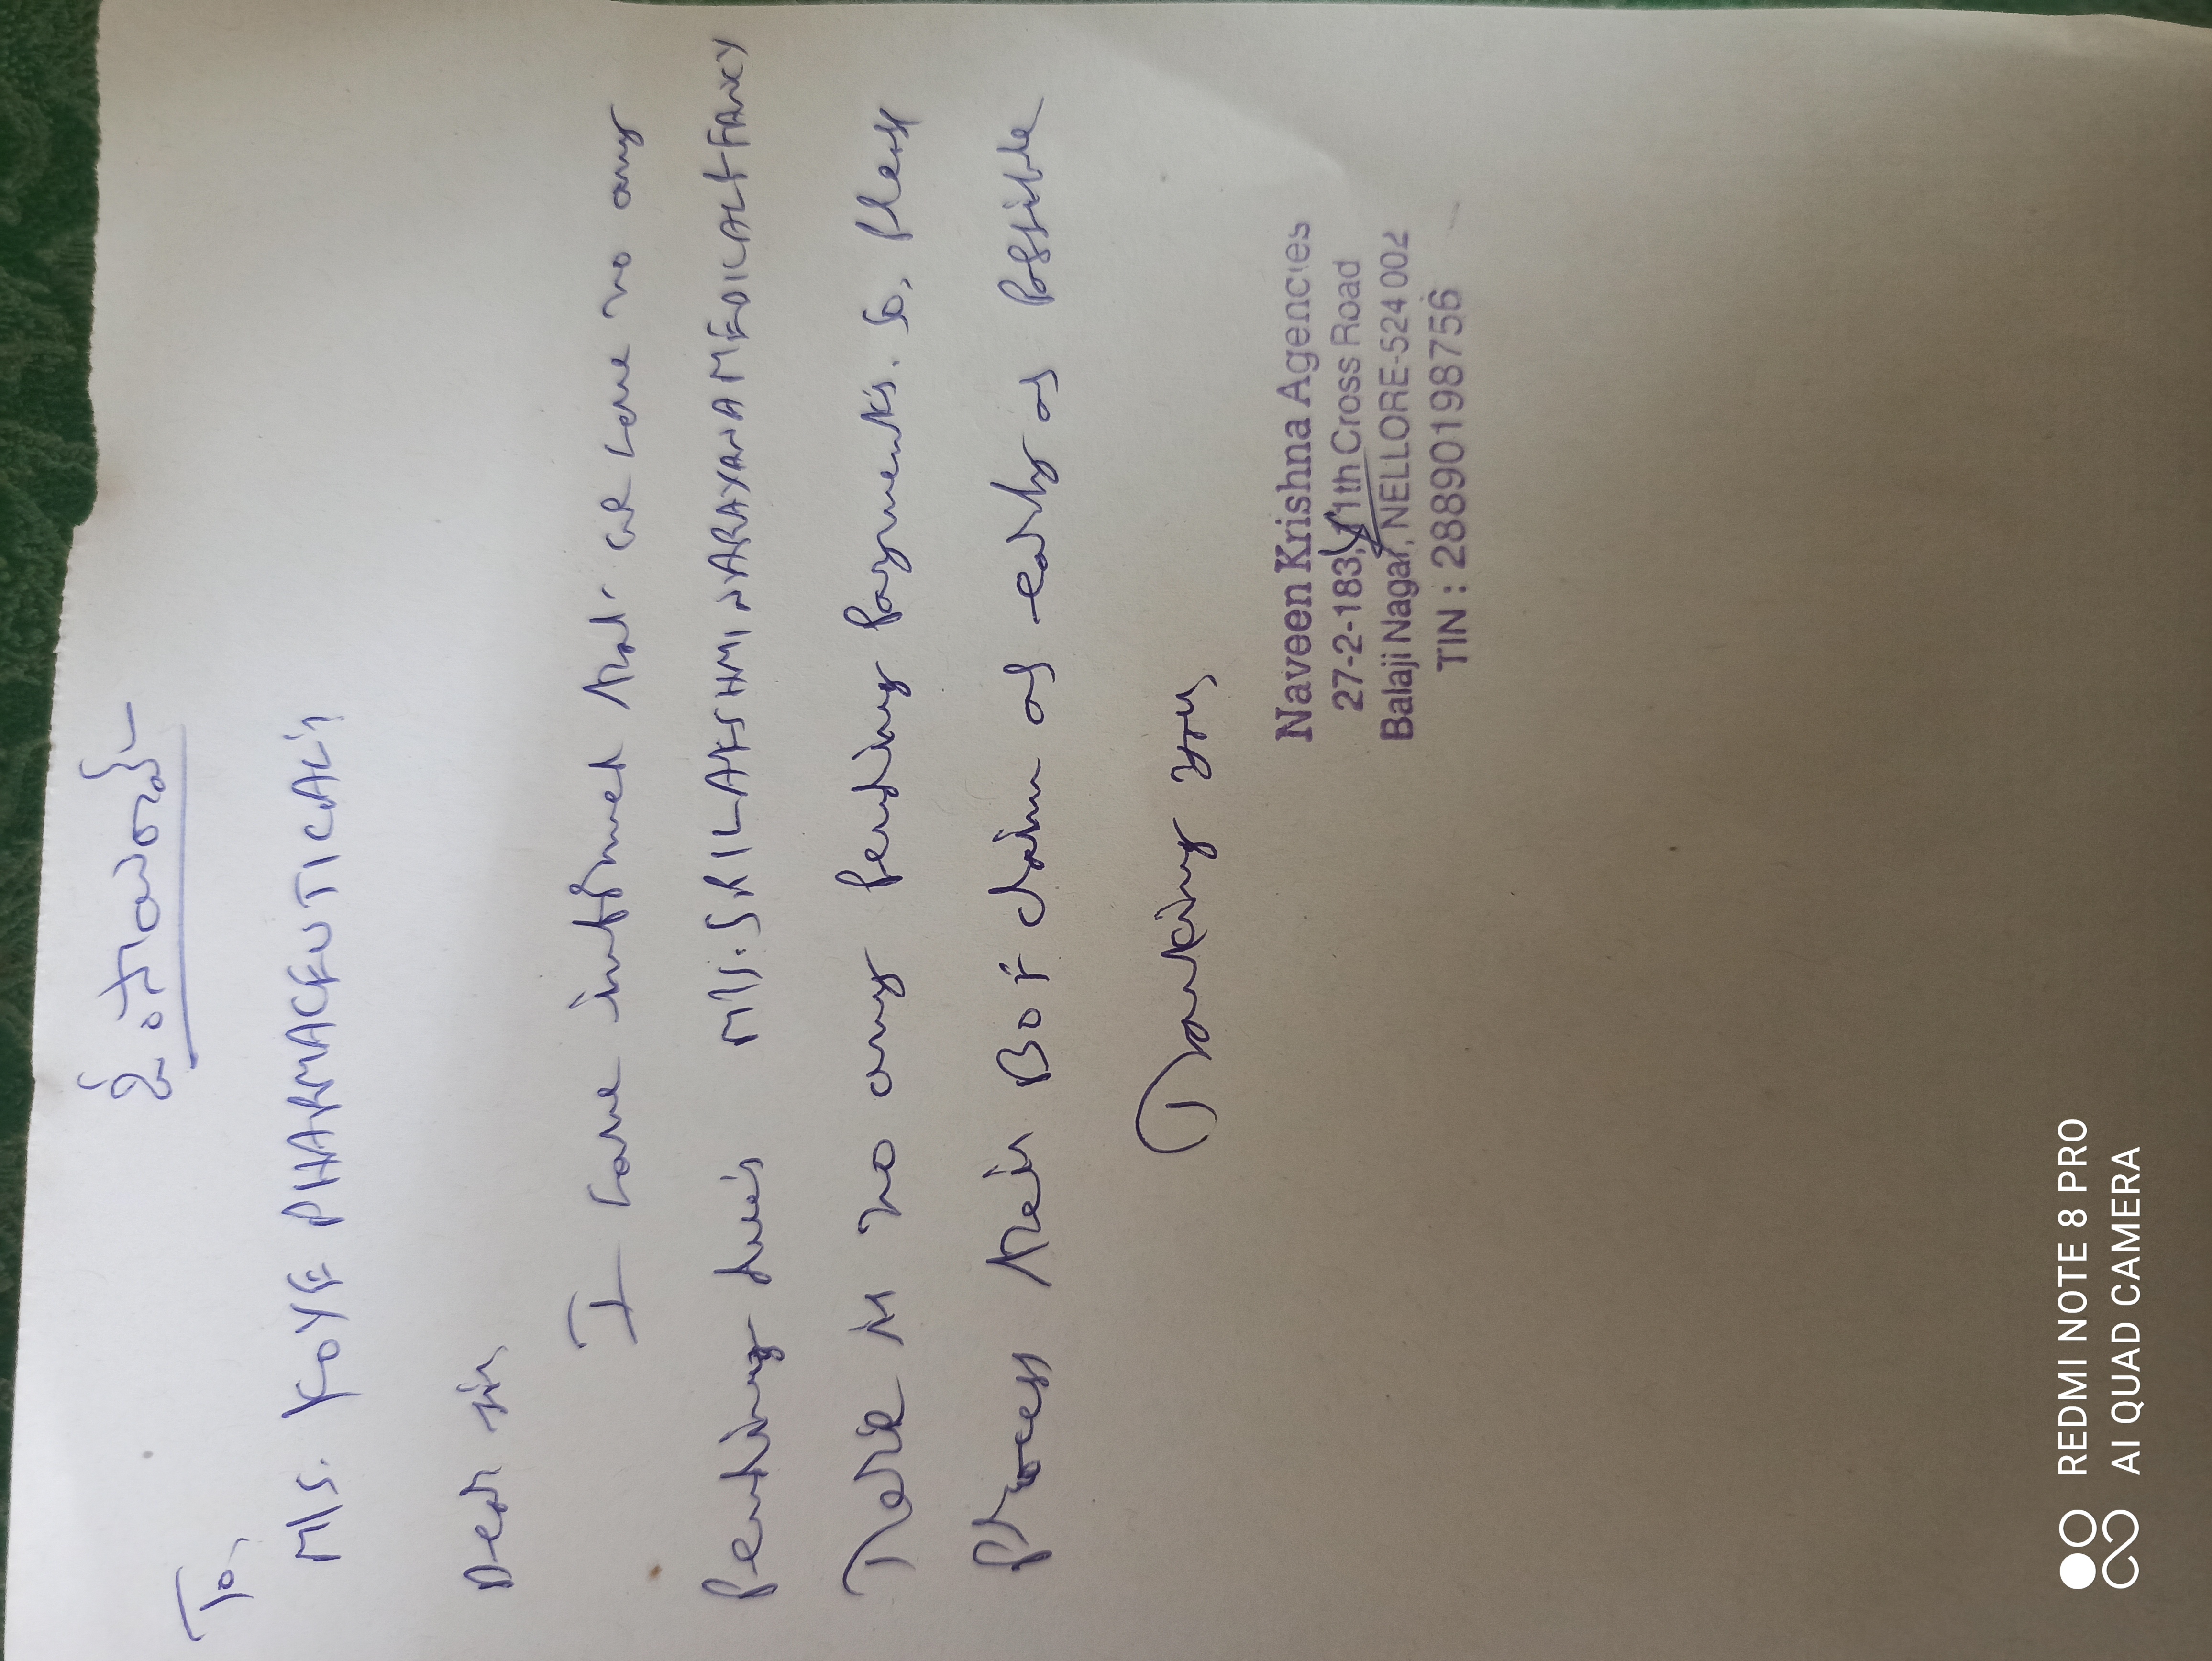 To,
M/s. YOYE PHARMACEUTICALS
Dear sir,
I have informed that we have no any
Pending due's M/s. SRI LAKSHMI NARAYANA MEDICAL & FANCY
There is no any pending payments. So, Please
Process their Bo & claim as early as possible
Thanking you,
Naveen Krishna Agencies
27-2-183, 11th Cross Road
Balaji Nagar, NELLORE-524 002
TIN : 28890198756
REDMI NOTE 8 PRO
AI QUAD CAMERA